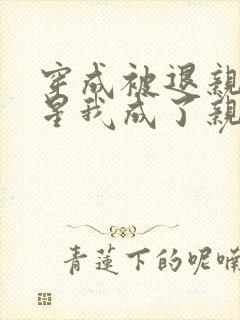 穿成被退親
星我成了親
青蓮下的呢喃